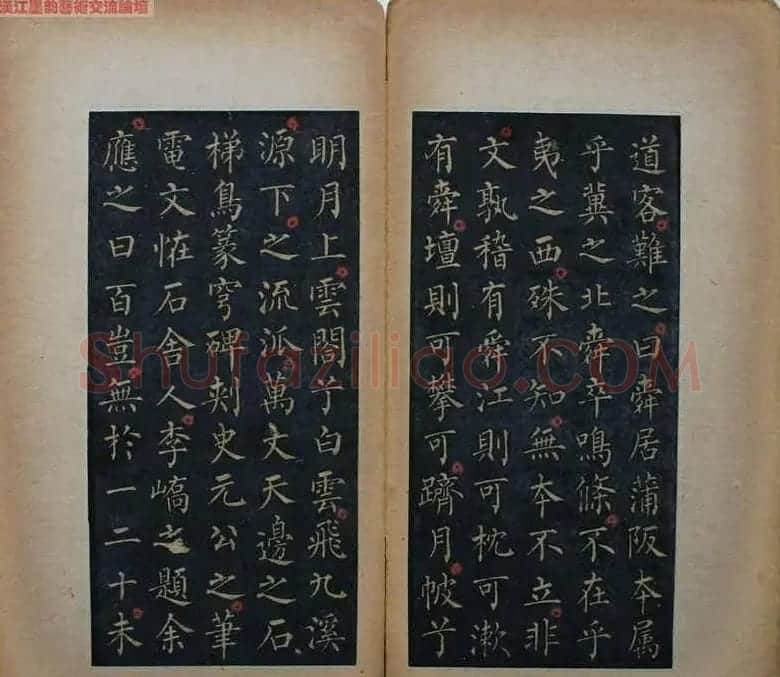 漢江墨韵藝術交流論壇
道客難之曰舜居蒲阪本属
乎冀之北舜卒鳴條不在乎
夷之西殊不知無本不立非
文孰稽有舜江則可枕可漱
有舜壇則可攀可躋月帔兮
明月上雲閣兮白雲飛九溪
源下之流派萬丈天邊之石
梯鳥篆穹碑刺史元公之筆
電文恠石舍人李嶠之題余
應之曰百豈無於一二十未
Shufaziliao.COM